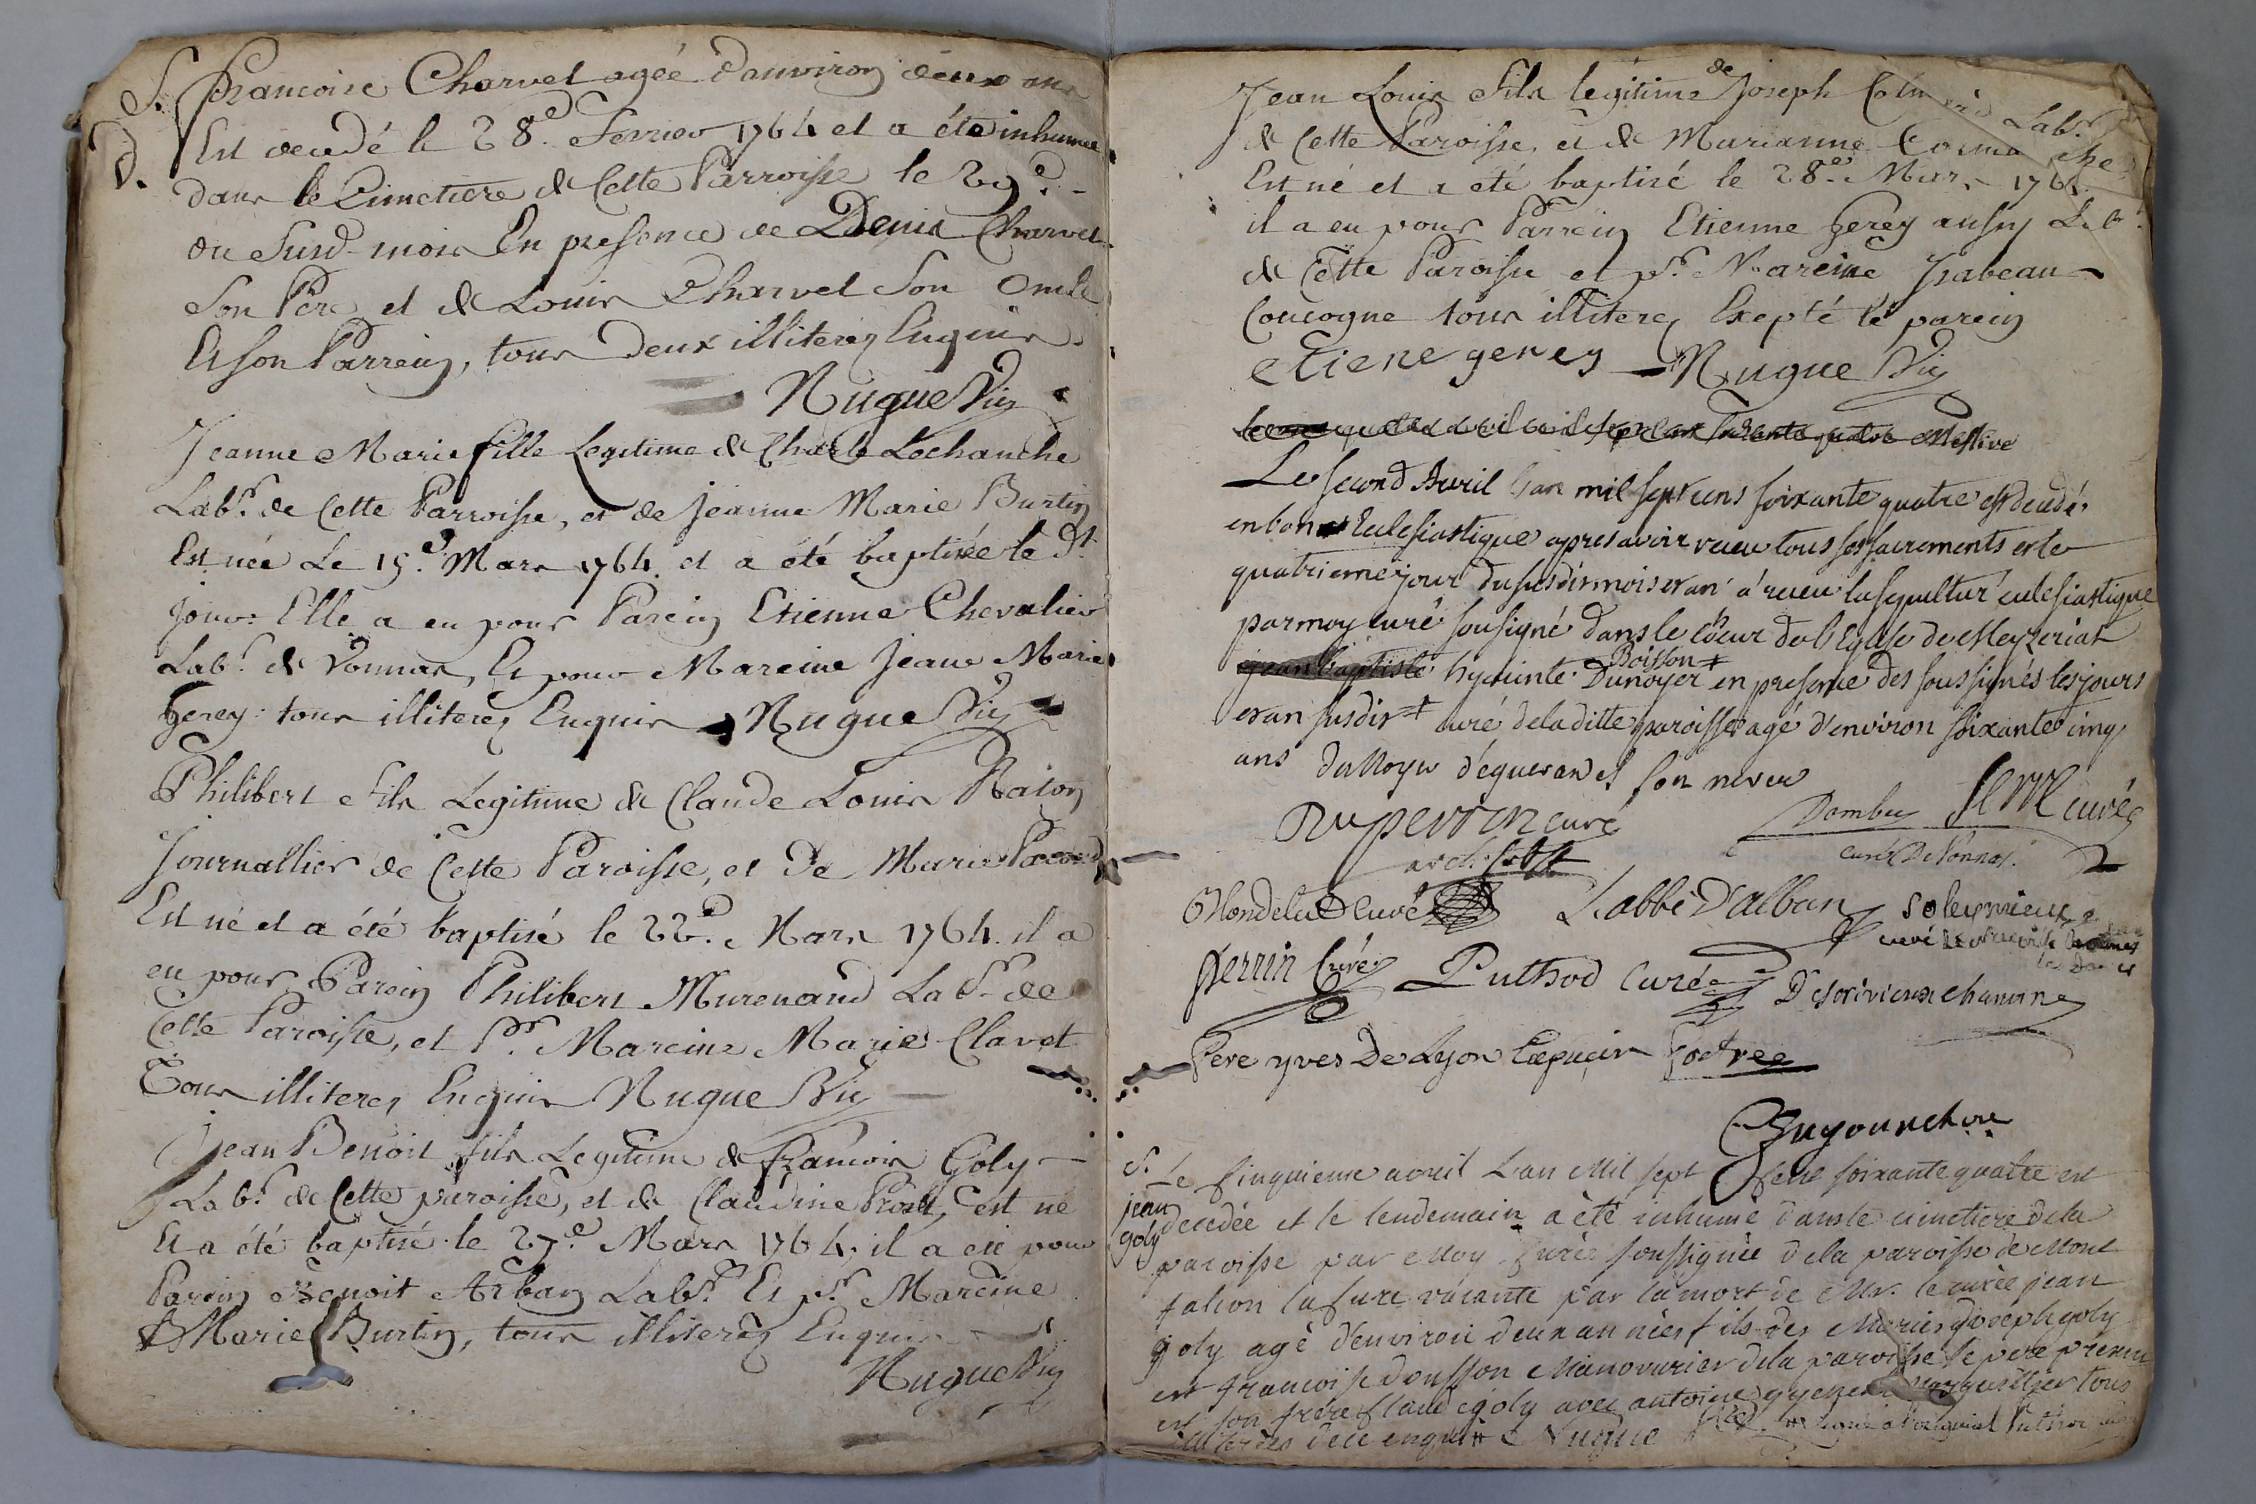 S. françoise Charvet agée d'anviron deux ans
d. Est decedé le 28e. Fevrier 1764 et a été inhumée
dans le Cimetiere de Cette Parroisse le 29e.
du Susd. mois En presence de Denis Charvet
Son Pere et de Louis Charvet Son Oncle
Et son Parrein, tous Deux illiteres Enquis.
Nugue Vic
Jeanne Marie fille Legitime de Charle Lechanche
Labr. de Cette Parroisse, et de Jeanne Marie Burtin
Est née Le 15e. Mars 1764. et a été baptisée le dt.
jour. Elle a eu pour Parein Etienne Chevalier
Labr. de Vonnas, Et pour Mareine Jeane Marie
Gerey. tous illiteres Enquis Nugue Vic
Philibert Fils Légitime de Claude Louis Raton
Journallier de Cette Paroisse, et De Marie
Est né et a été baptisé le 22e. Mars 1764. il a
eu pour Parein Philibert Murenand Labr. de
Cette Paroisse, et Pr. Mareine Marie Clavet
Tous illiteres Enquis Nugue Vic
Jean Benoit fils Legitime de françois Goly
Labr. de Cette paroisse, et de Claudine est né
Et a été baptisé le 27e. Mars 1764. il a eu pour
Parein Benoit Arban Labr. Et pr. Mareine
Marie Burtin, tous illiteres Enquis
Nugue Vic
Jean Louis Fils legitime de Joseph Labr.
de Cette Paroisse, et de Marianne
Est né et a été baptisé le 28e. Mars 1764.
il a eu pour Parrein Etienne Gerey aussy Lab.
de Cette Paroisse et pr. Mareine Isabeau
Coucogne tous illiteres Exepté le parein
etiene gerey Nugue Vic
Le second Avril l'an mil sept cens soixante quatre est decedé
en bon Eclesiastique apres avoir reçu tous ses sacrements et le
quatrieme jour du susdit mois et an a reçu la sepulture eclesiastique
par moy curé sousigné dans le choeur de l'Eglise de Mezeriat
jean baptiste hyacinte Boisson Dunoyer en presence des soussignés les jours
et an susdit + curé de la ditte paroisse agé d'environ soixante cinq
ans duNoyer d'equeran son neveu
Duperron curé Dombey curé
archiprêt curé De Vonnas.
Mondelu Curé L'abbé D'alban Soleymieux
curé
Perrin Curé Puthod Curé Descrivieux chanoine
Pere yves De Lyon Capucin
Guyounchon
S. Le sinquieme avril L'an Mil sept sent soixante quatre est
jean decedée et le lendemain a été inhumé dans le cimetiere de la
goly paroisse par Moy Curée soussignée de la paroisse de Mont
falcon la Cure vacante par la mort de Mr. le curée jean
goly agé d'environ deux années fils des Mariés joseph goly
et francoise dousson Manouvrier de la paroisse le pere présent
et son frere Claude goly avec antoine tous
illiteres de ce enquis Nugue Puthod